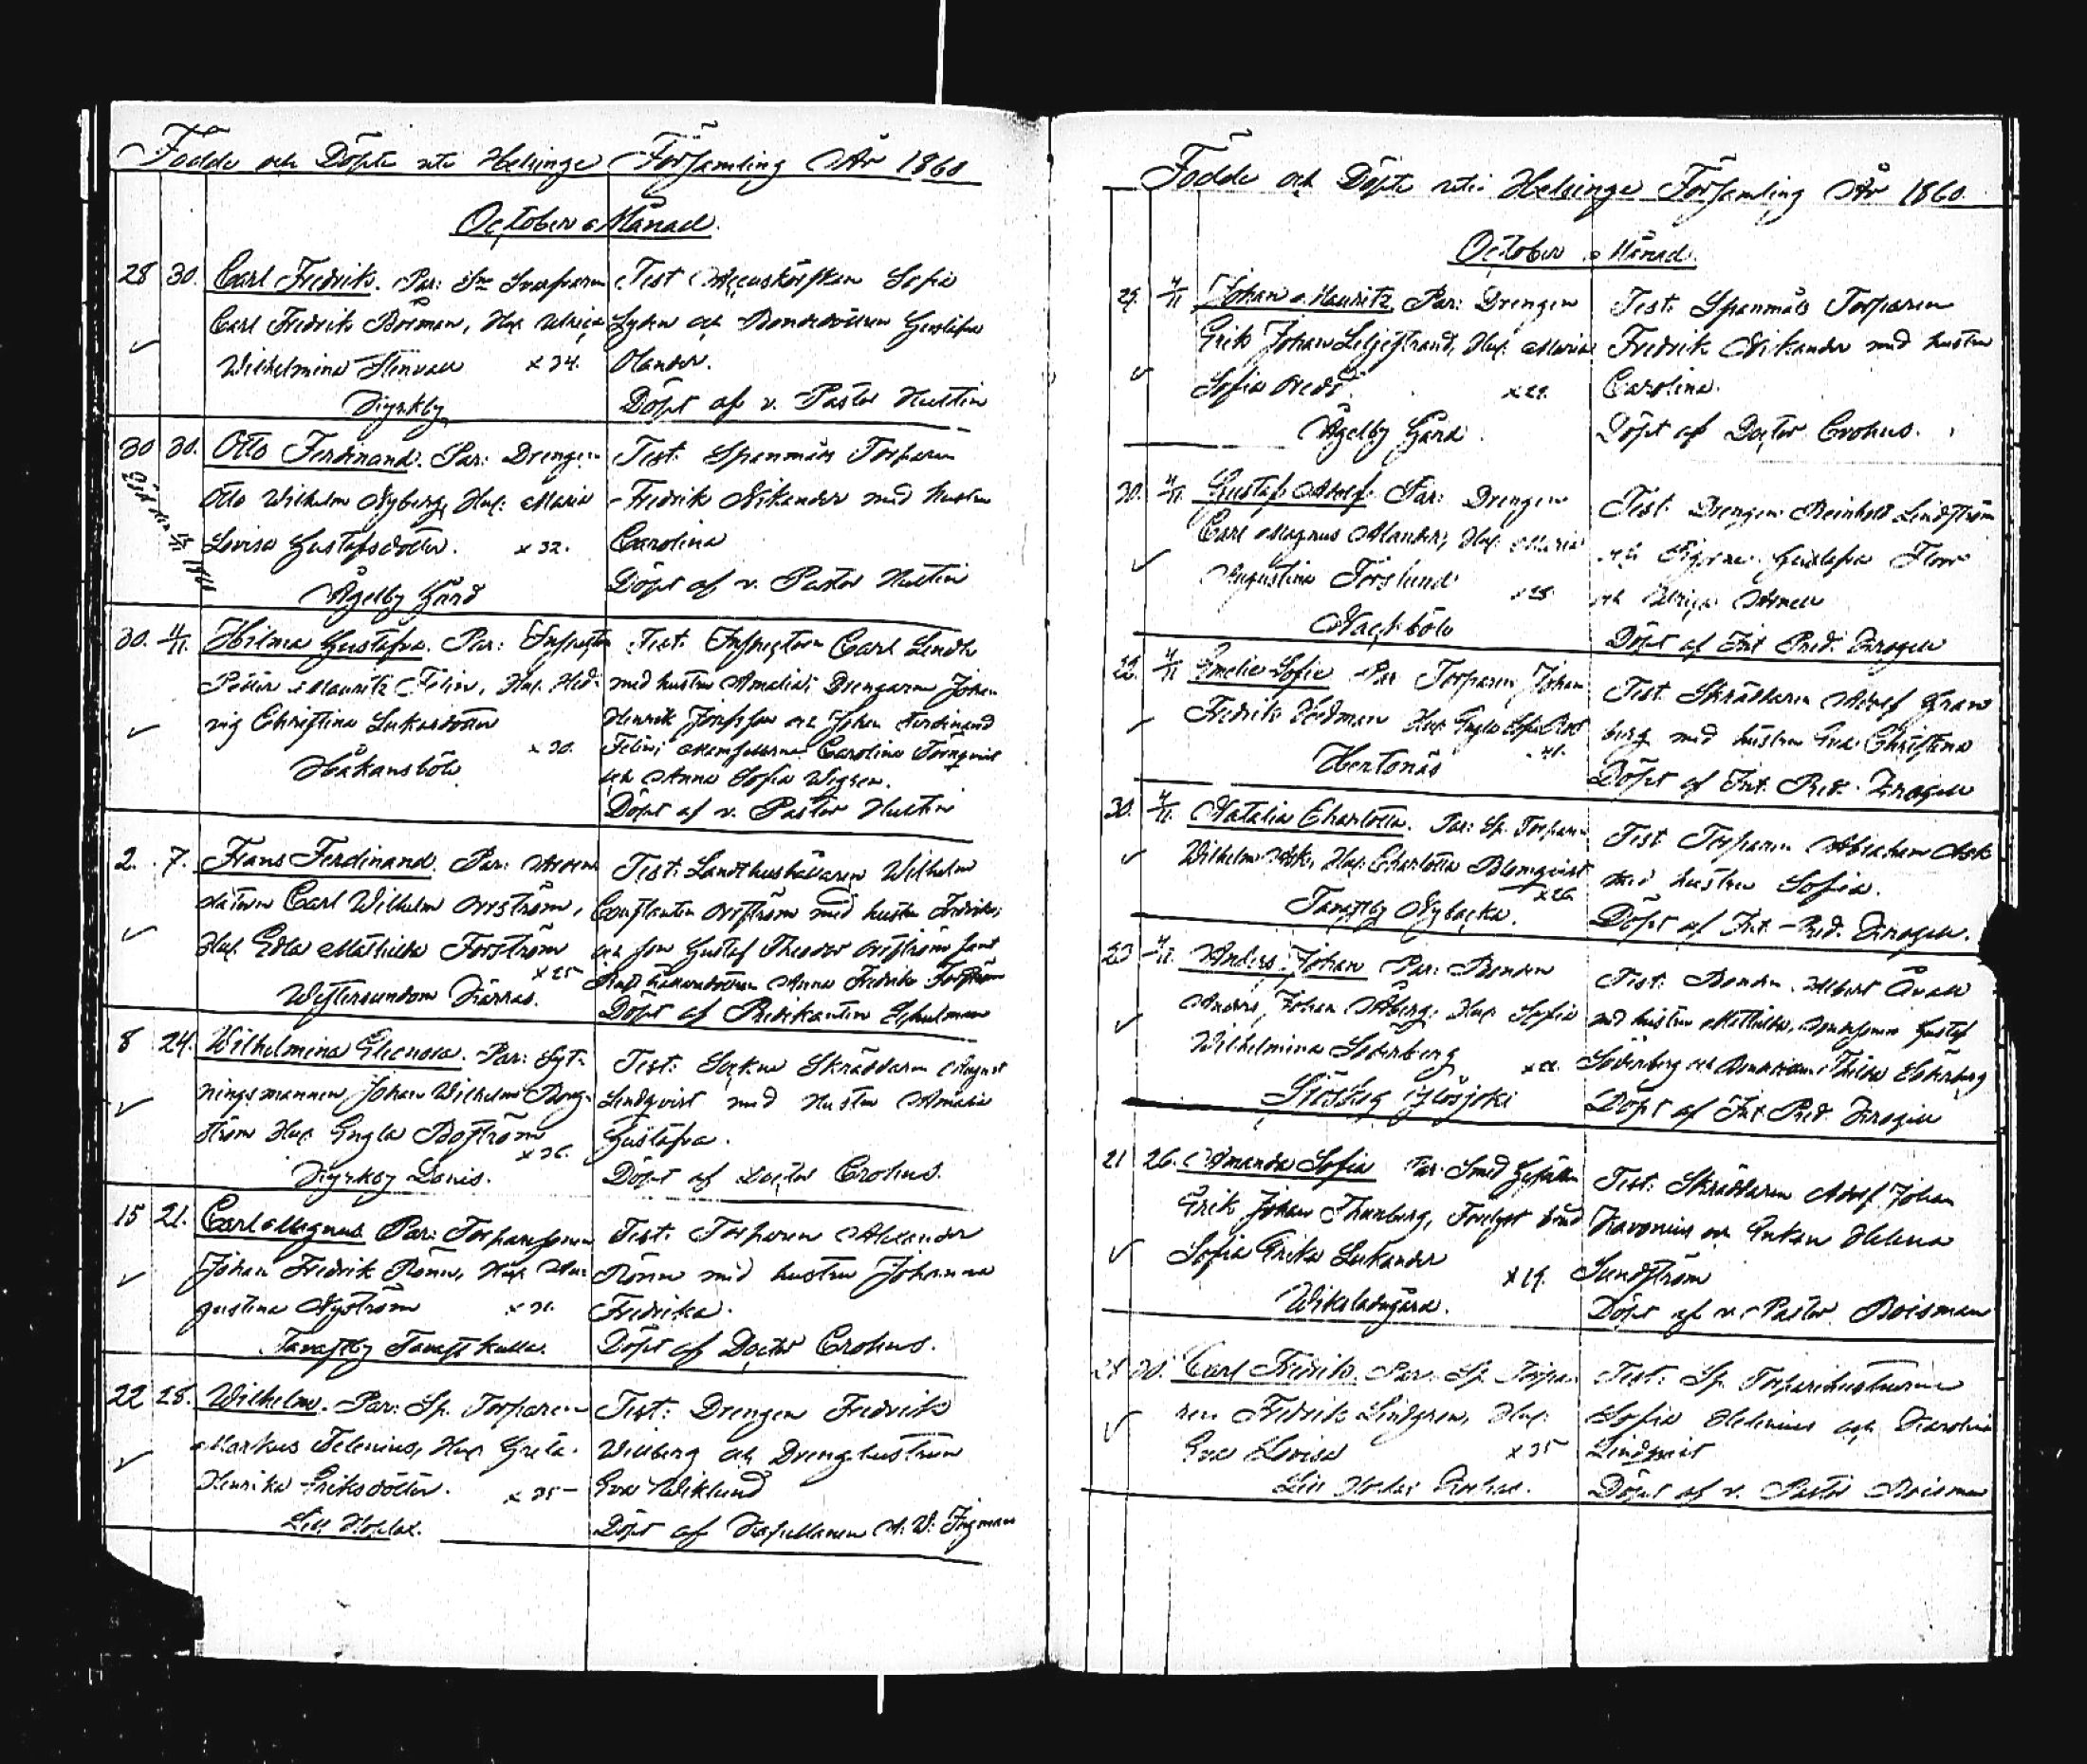 Födde och Döpte uti Helsinge Församling År 1860
October Månad.
28 30. Carl Fredrik. Par:
Carl Fredrik Boman, Hus. Ulrica
Wilhelmina Stenvall x 34.
Kyrkby
Test. Sofia
och Bondedottren Gustafva
Olander.
Döpt af v. Pastor Hultin
30 30. Otto Ferdinand. Par: Drengen
Otto Wilhelm Nyberg, Hus. Maria
Lovisa Gustafsdotter. x 32.
Åggelby Gård
Test. Spanmåls Torparen
Fredrik Nikander med hustru
Carolina
Döpt af v. Pastor Hultin
30. 4/11. Hilma Gustafva. Par: Inspector
Petter Mauritz Felin, Hus. Hed-
vig Christina Lukasdotter
x 30.
Håkansböle
Test. Inspectorn Carl Lindh
med hustru Amalia; Drengarne Johan
Henrik Josefsson och Johan Ferdinand
Felin; Mamsellerna Carolina Törnqvist
och Anna Sofia
Döpt af v. Pastor Hultin
2. 7. Frans Ferdinand. Par:
Carl Wilhelm
Hus. Edla Mathilda Forström
x 25
Westersundom Kärras.
Test. Landthushållaren Wilhelm
Constantin med hustru Fredrika;
och son Gustaf Theodor samt
Anna Fredrika Forström
Döpt af Predikanten Schulman
8 24. Wilhelmina Eleonora. Par: Syt-
ningsmannen Johan Wilhelm Berg-
ström Hus. Engla Boström
x 36.
Kyrkby Domis.
Test: Socken Skräddaren August
Lindqvist med Hustru Amalia
Gustafva.
Döpt af Doctor Crohns.
15 21. Carl Magnus. Par: Torparesonen
Johan Fredrik Rönn, Hus. Au-
gustina Nyström x 31.
Tavastby Tavastkulla.
Test: Torparen Alexander
Rönn med hustru Johanna
Fredrika.
Döpt af Doctor Crohns.
22 28. Wilhelm. Par: Sp. Torparen
Markus Helenius, Hus. Greta
Henrika Eriksdotter. x 35
Lill Hoplax.
Test: Drengen Fredrik
Willberg och Drenghustrun
Eva Wiklund
Döpt af Kapellanen A. W. Ingman
Födde och Döpte uti Helsinge Församling År 1860.
October Månad.
29. 4/11 Johan Mauritz. Par: Drengen
Erik Johan Liljestrand, Hus. Maria
Sofia x 29.
Åggelby Gård.
Test: Spanmåls Torparen
Fredrik Nikander med hustru
Carolina.
Döpt af Doctor Crohns.
30. 4/11. Gustaf Adolf. Par: Drengen
Carl Magnus Alander, Hus. Maria
Augustina Forslund x 28.
Nackböle
Test. Drengen Reinhold Lindström
och Pigorna Gustafva Flor
och Ulrica
Döpt af Ext. Pred. Krogell
4/11 Emelie Sofie Par Torparen Johan
Fredrik Hedman Hus. Engla
Hertonäs
Test. Skräddaren Adolf Gran-
berg med hustru Eva Christina
Döpt af Ext. Pred. Krogell
30. 4/11. Natalia Charlotta. Par: Sp. Torparen
Wilhelm Ask, Hus. Charlotta Blomqvist
x 26
Tavastby Nybacka.
Test Torparen Abraham Ask
med hustru Sofia.
Döpt af Ext. Pred. Krogell.
23 4/11. Anders Johan Par: Bonden
Anders Johan Åberg, Hus. Sofia
Wilhelmina Söderberg x 22.
Test: Bonden Albert
med hustru Mathilda, Gustaf
Söderberg och Söderberg
Döpt af Ext. Pred. Krogell
21 26. Amanda Sofia Par. Smed Gesällen
Erik Johan Thunberg, Brud
Sofia Erika Lukander
x 19.
Wiksladugård.
Test: Skräddaren Adolf Johan
och Enkan Helena
Sundström
Döpt af v. Pastor Boisman
28 30. Carl Fredrik. Par: Sp. Torpa-
ren Fredrik Lindgren, Hus.
Eva Lovisa x 35
Test: Sp. Torparehustrurna
Sofia Helenius och Karolina
Lindqvist
Döpt af v. Pastor Boisman